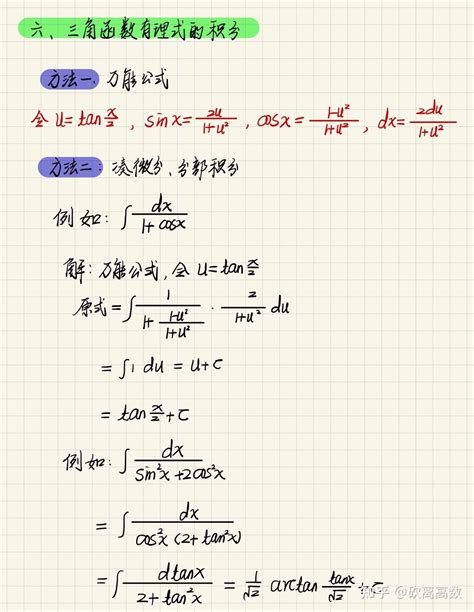 六、三角函数有理式的积分
方法一. 万能公式
令 u=tan x/2 , sinx= 2u/(1+u²) , cosx= (1-u²)/(1+u²) , dx= 2du/(1+u²)
方法二: 凑微分、分部积分
例如: ∫ dx/(1+cosx)
解: 万能公式, 令 u=tan x/2
原式= ∫ 1/(1+ (1-u²)/(1+u²)) · 2/(1+u²) du
= ∫1 du = u+c
= tan x/2 +c
例如: ∫ dx/(sin²x+2cos²x)
= ∫ dx/(cos²x (2+tan²x))
= ∫ dtanx/(2+tan²x) = 1/√2 arctan tanx/√2 +c
知乎 @砍离高数